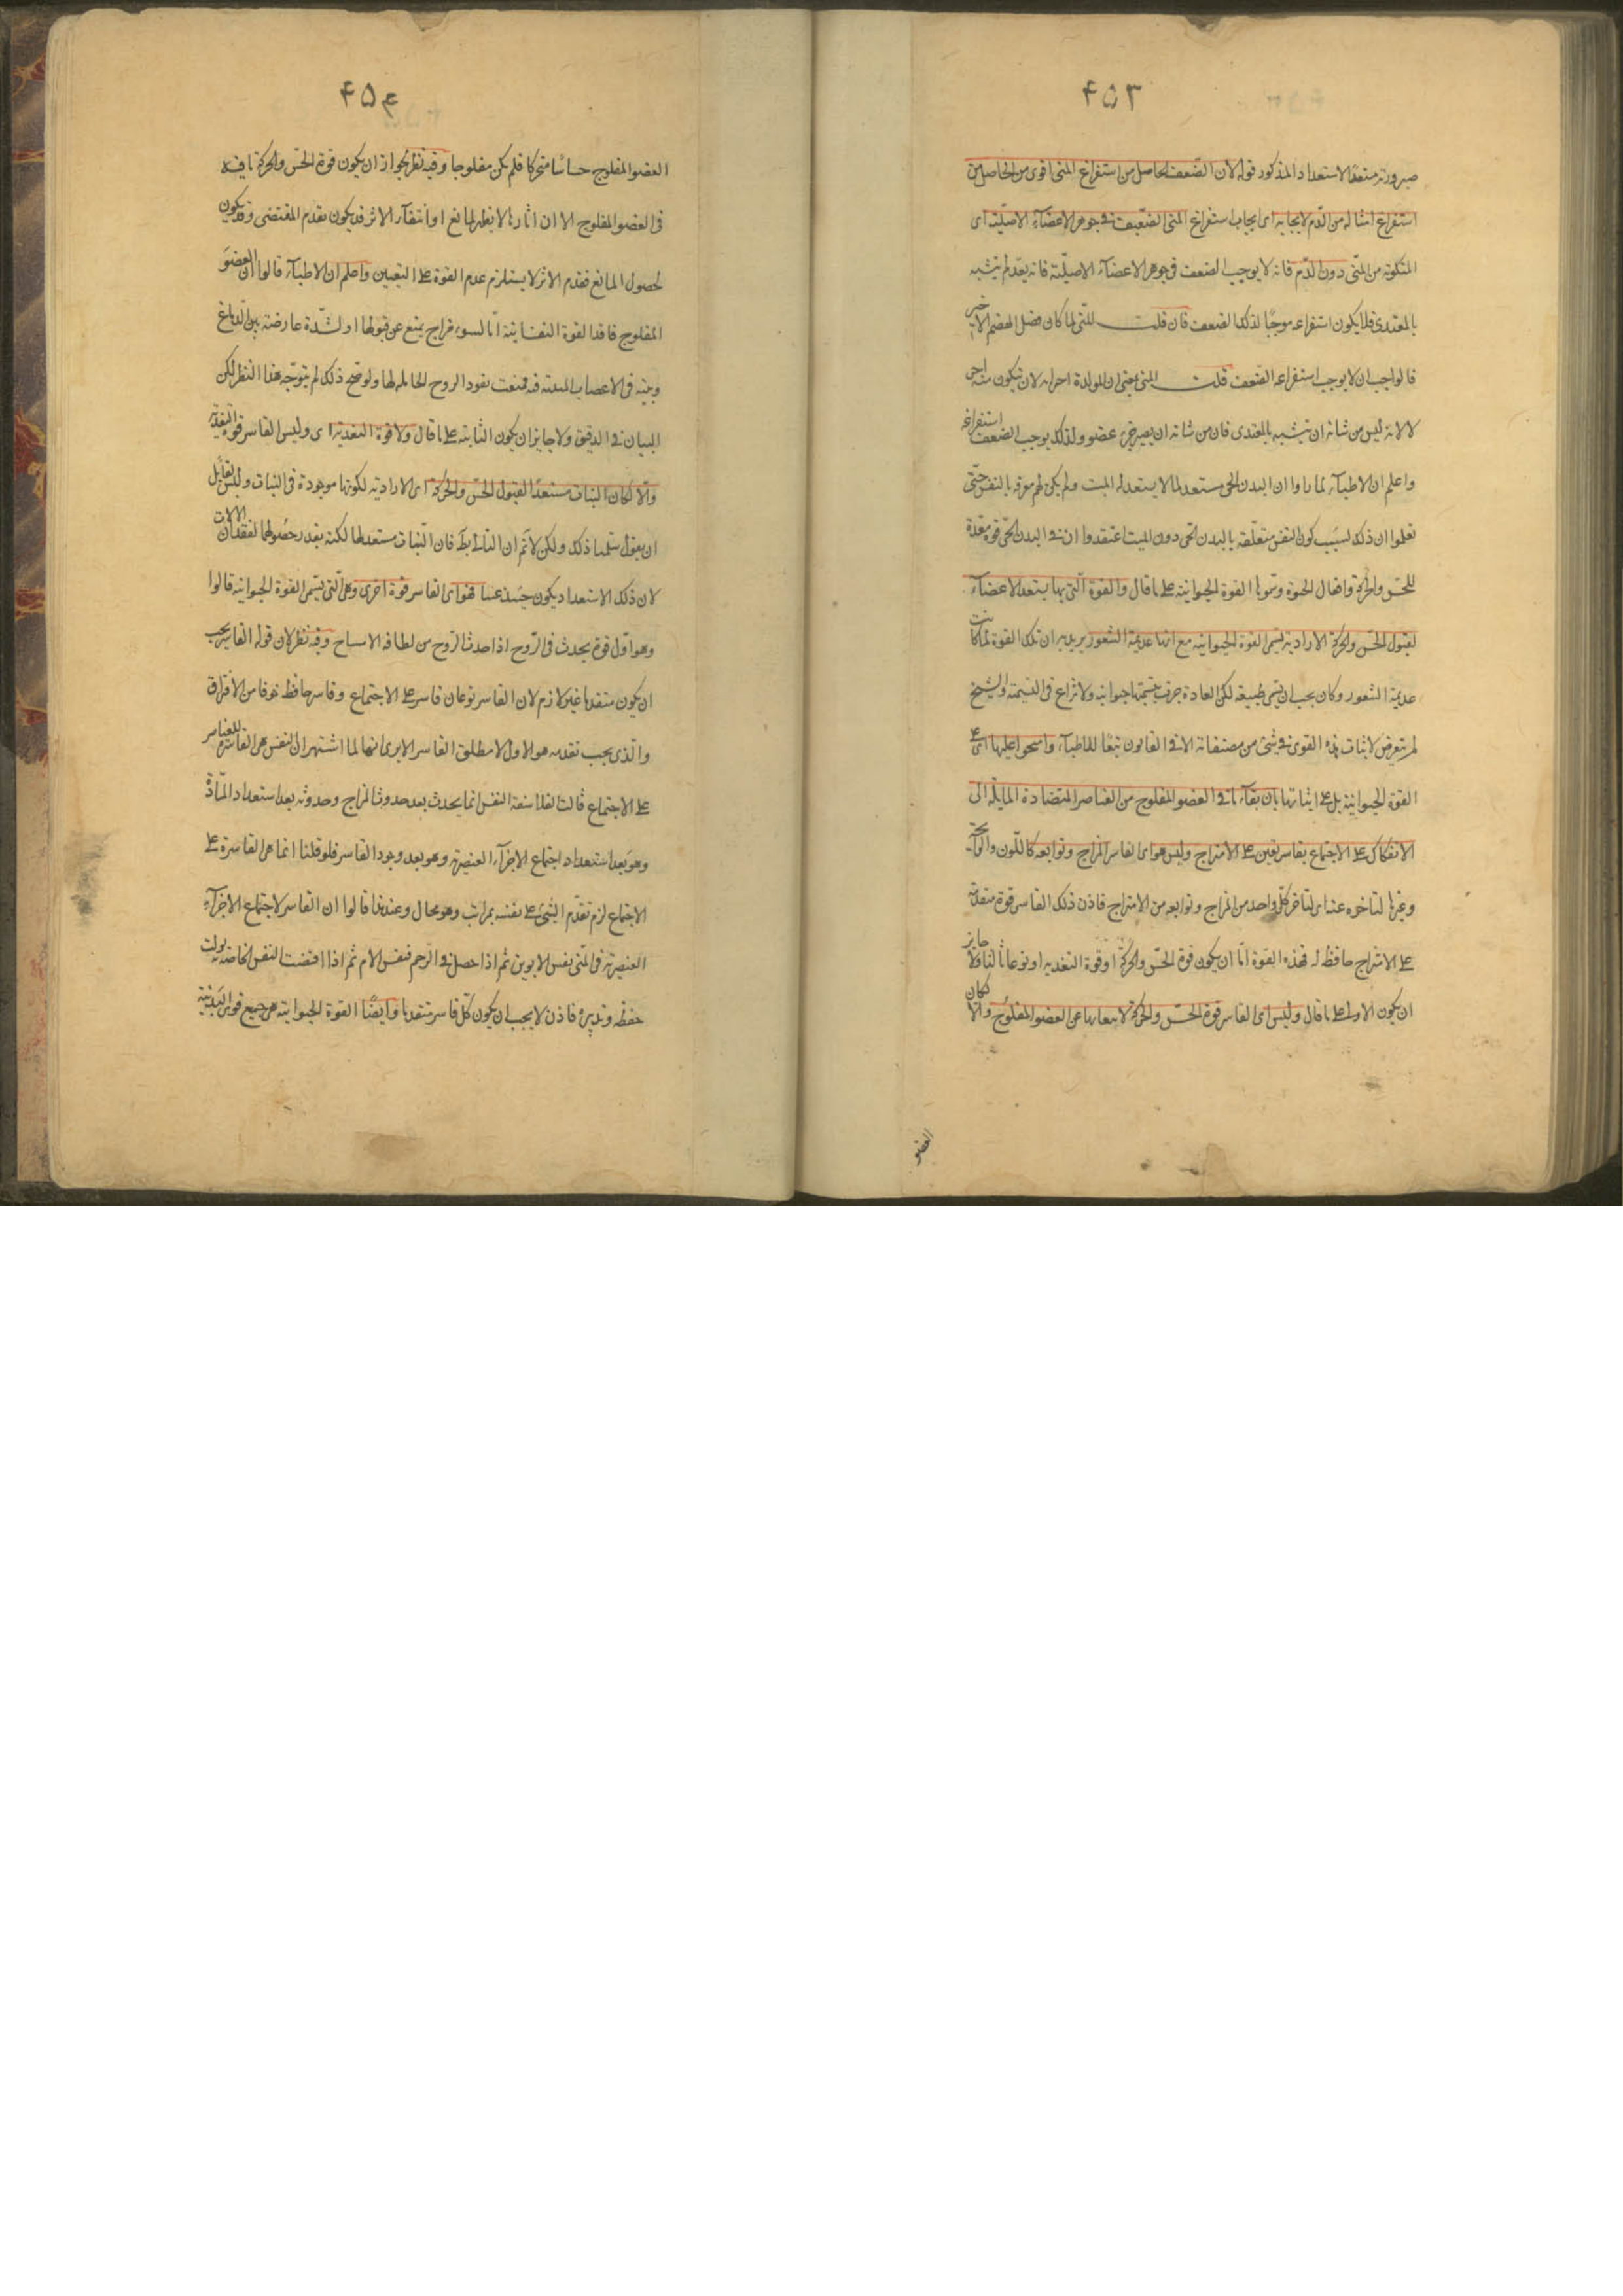 ٤٥٣
صيرورته مستعدًا للاستعداد المذكور قوله لان الضعف الحاصل من استفراغ المنى اقوى من الحاصل من
استفراغ امثاله من الدم لايجابه اى ايجاب استفراغ المنى الضعيف فى جوهر الاعضآء الاصلية اى
المتكونة من المنى دون الدم فانه لا يوجب الضعف فى جوهر الاعضآء الاصلية فانه بعد لم يتشبه
بالمغتدى فلا يكون استفراغه موجبًا لذلك الضعف فان قلت المنى لما كان فضل الهضم الاخير
فالواجب ان لا يوجب استفراغه الضعف قلت المنى يعنى ان المولدة لان تكون منه
لا لانه ليس من شانه ان يتشبه بالمغتدى فان من شانه ان يصير جزء عضو ولذلك يوجب استفراغه الضعف
واعلم ان الاطبآء لما راوا ان البدن الحى مستعد لما لا يستعد له الميت ولم يكن لهم معرفة بالنفس حتى
تعلموا ان ذلك لسبب كون النفس متعلقة بالبدن الحى دون الميت اعتقدوا ان فى البدن الحى قوة معدة
للحس والحركة وافعال الحيوة وسموها القوة الحيوانية على ما قال والقوة التى بها يستعد الاعضآء
لقبول الحس والحركة الارادية تسمى القوة الحيوانية مع انها عديمة الشعور يريد به ان تلك القوة لما كانت
عديمة الشعور وكان يجب ان تسمى طبيعية لكن العادة جرت بتسميتها حيوانية ولا نزاع فى التسمية والشيخ
لم يتعرض لاثبات هذه القوى فى شئ من مصنفاته الا فى القانون تبعًا للاطبآء واحتجوا عليها اى على
القوة الحيوانية بل على اثباتها بان بقآء ما فى العضو المفلوج من العناصر المتضادة المايلة الى
الانفكاك على الاجتماع بقاسر يعين على الامتزاج وليس هو اى القاسر المزاج وتوابعه كاللون والرآيحة
وغيرها لتاخره عنه اى لتاخر كل واحد من المزاج وتوابعه من الامتزاج فاذن ذلك القاسر قوة متقدمة
على الامتزاج حافظة له فهذه القوة اما ان يكون قوة الحس والحركة او قوة التغذيه او نوعًا ثالثا ولا جايز
ان يكون الاولى على ما قال وليس اى القاسر قوة الحس والحركة لا تبعا بها عن العضو المفلوج والا لكان
العضو
٤٥٤
العضو المفلوج حساسًا متحركا فلم يكن مفلوجا وفيه نظر لجواز ان يكون قوة الحس والحركة باقية
فى العضو المفلوج الا ان اثارها لا يظهر لمانع اذ انتفآء الاثر قد يكون بعدم المقتضى وقد يكون
لحصول المانع فعدم الاثر لا يستلزم عدم القوة على التعيين واعلم ان الاطبآء قالوا ان العضو
المفلوج فاقد القوة النفسانية امّا لسوء مزاج يمنع عن قبولها او لشدّة عارضة بين الدماغ
وبينه فى الاعصاب المنبثه فيه فمنعت نفوذ الروح الحامله لها ولو صح ذلك لم يتوجّه هذا النظر لكن
البيان فى الدقيق ولا جايز ان يكون الثانية على ما قال ولا قوة التغذية اى وليس القاسر قوة التغذية
والّا لكان النبات مستعدًا لقبول الحس والحركة اى الارادية لكونها موجودة فى النبات وليس لقائل
ان يقول سلمنا ذلك ولكن لا نم ان التالى بط فان النبات مستعد لها لكنه تعذر حصولها لفقدان الالات
لان ذلك الاستعداد يكون حينئذ عبثا فهو اى القاسر قوة اخرى وهى التى يسمى القوة الحيوانية قالوا
وهو اول قوة يحدث فى الروح اذا حدث الروح من لطافة الامشاج وفيه نظر لان قوله القاسر يجب
ان يكون متقدما غير لازم لان القاسر نوعان قاسر على الاجتماع وقاسر حافظ خوفا من الافتراق
والذى يجب تقدمه هو الاول لا مطلق القاسر الا يرى انها لما اشتهر ان النفس هى القاسرة للعناصر
على الاجتماع قالت الفلاسفة النفس انما يحدث بعد حدوث المزاج وحدوثه بعد استعداد المادّة
وهو بعد استعداد اجتماع الاجزآء العنصرية وهو بعد وجود القاسر فلو قلنا انما هى القاسرة على
الاجتماع لزم تقدم الشئ على نفسه بمراتب وهو محال وعند هذا قالوا ان القاسر لاجتماع الاجزآء
العنصرية فى المنى نفس الابوين ثم اذا حصل فى الرحم فنفس الام ثم اذا افيضت النفس الخاصة تولت
حفظه وتدبيره فاذن لا يجب ان يكون كل قاسر متقدما وايضًا القوة الحيوانية هى جميع قوى البدنية